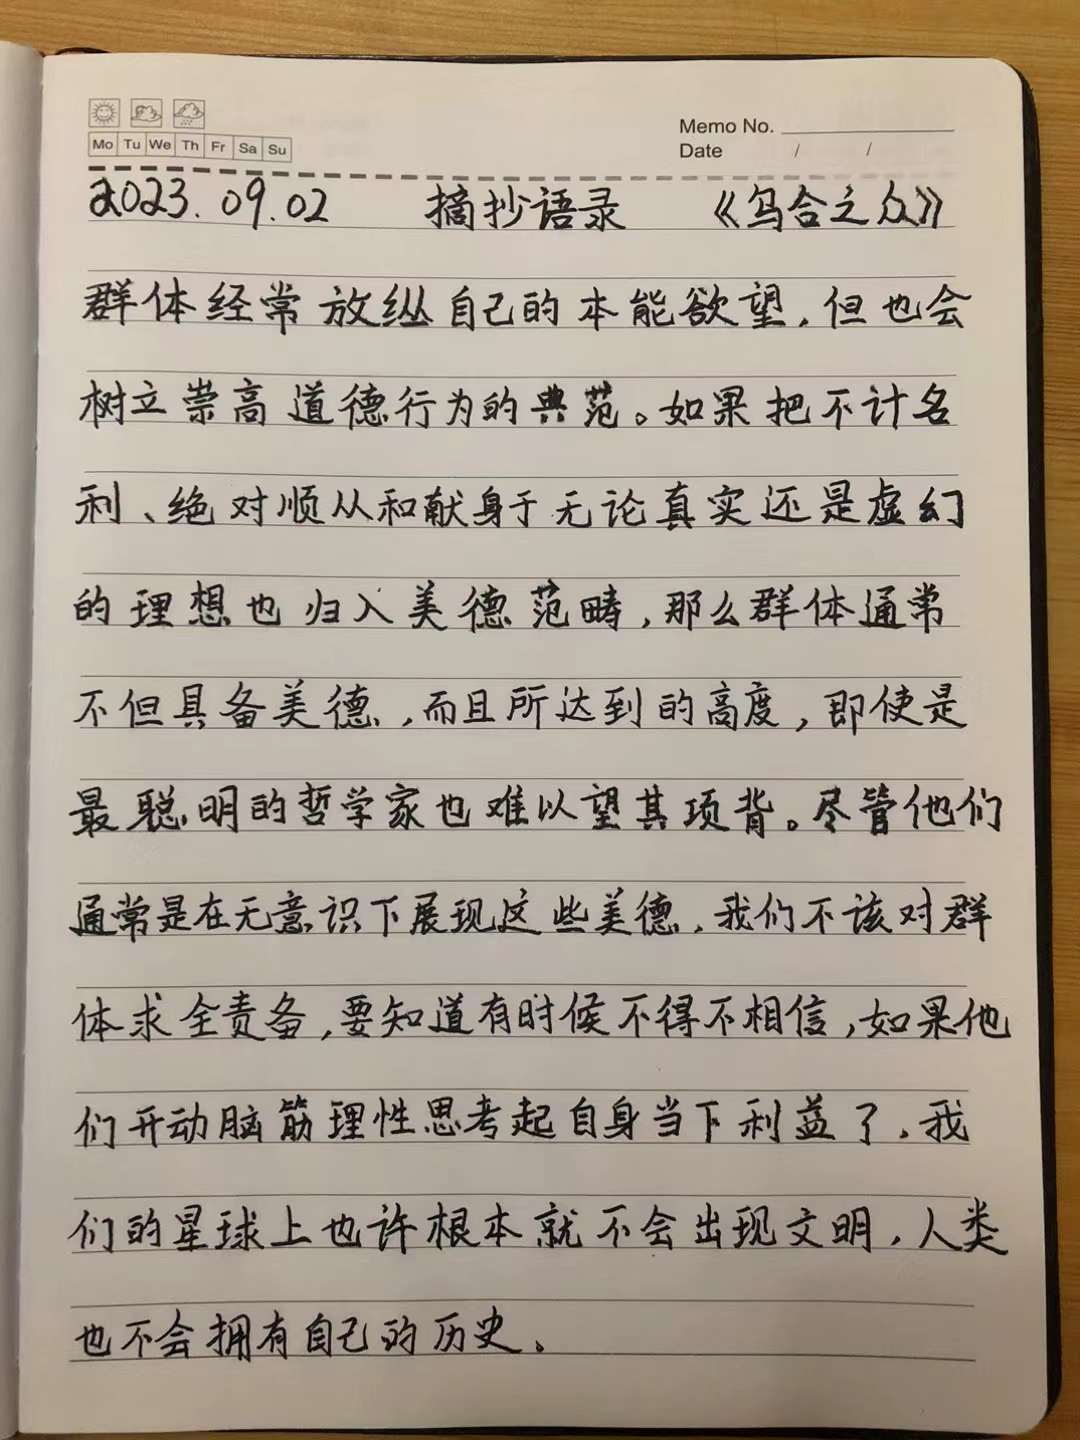 Mo Tu We Th Fr Sa Su
Memo No.
Date / /
2023.09.02 摘抄语录 《乌合之众》
群体经常放纵自己的本能欲望,但也会
树立崇高道德行为的典范。如果把不计名
利、绝对顺从和献身于无论真实还是虚幻
的理想也归入美德范畴,那么群体通常
不但具备美德,而且所达到的高度,即使是
最聪明的哲学家也难以望其项背。尽管他们
通常是在无意识下展现这些美德,我们不该对群
体求全责备,要知道有时候不得不相信,如果他
们开动脑筋理性思考起自身当下利益了,我
们的星球上也许根本就不会出现文明,人类
也不会拥有自己的历史。